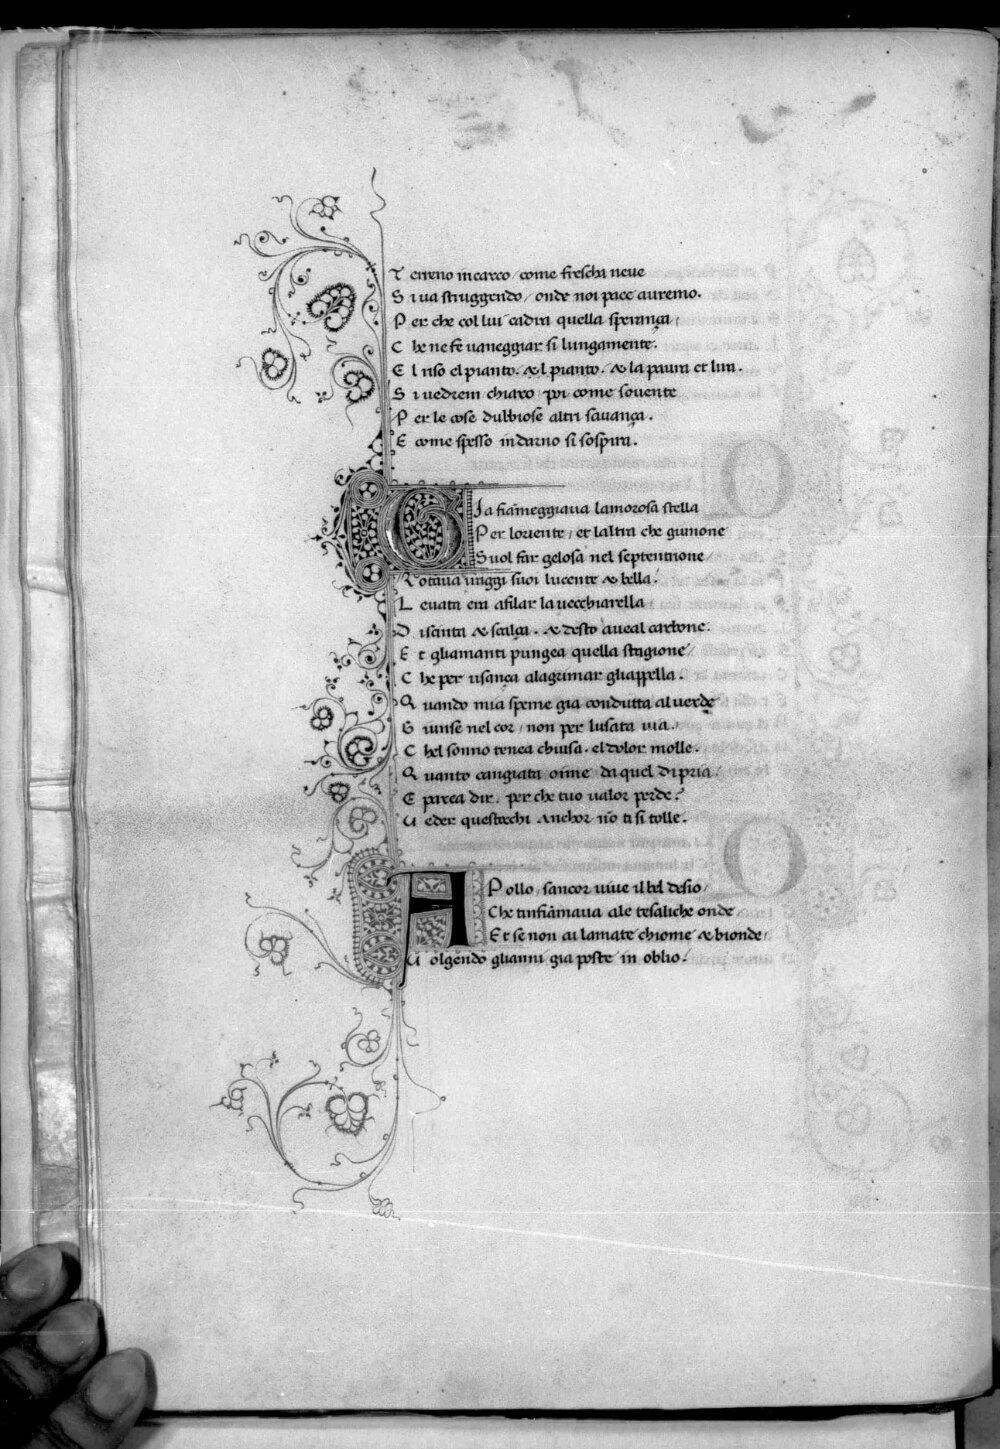 T erreno incarco / come frescha neue
S i ua struggendo / onde noi pace auremo.
P er che col lui cadra quella sperança /
C he ne fe uaneggiar si lungamente.
E l riso el pianto. & la paura et lira.
S i uedrem chiaro poi come souente
P er le cose dubbiose altri sauança.
E come spesso indarno si sospira.
G Ia fiāmeggiaua lamorosa stella
P er loriente / et laltra che giunone
S uol far gelosa nel septentrione
R otaua iraggi suoi lucente & bella.
L euata era afilar la uecchiarella
D iscinta & scalça. & desto aueal carbone.
E t gliamanti pungea quella stagione
C he per usança alagrimar gliappella.
Q uando mia speme gia condutta al uerde
G iunse nel cor / non per lusata uia.
C hel sonno tenea chiusa. el dolor molle.
Q uanto cangiata oime da quel di pria.
E parea dir. per che tuo ualor perde.
U eder questocchi Anchor nō ti si tolle.
A Pollo / sancor uiue il bel desio /
Che tinfiāmaua ale tesaliche onde
Et se non ai lamate chiome & bionde /
U olgendo glianni gia poste in oblio.